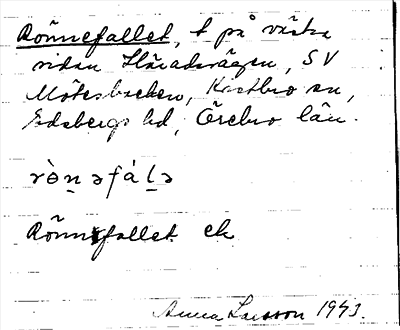 Rönnefallet, t på västra
sidan Häradsvägen, SV
Mötesbacken, Knistbro sn,
Edsbergs hd, Örebro län.
rò̤n̲əfál̲ə
Rönnefallet ek
Anna Larsson 1943.